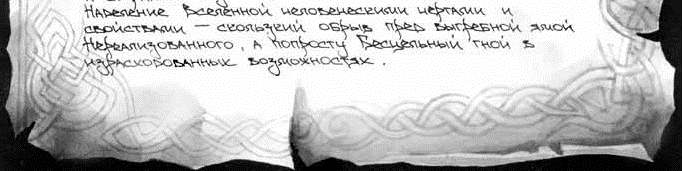 Наделение Вселенной человеческими чертами и
свойствами – скользкий обрыв пред выгребной ямой
Нереализованного, а попросту Бесцельный гной в
израсходованных возможностях.